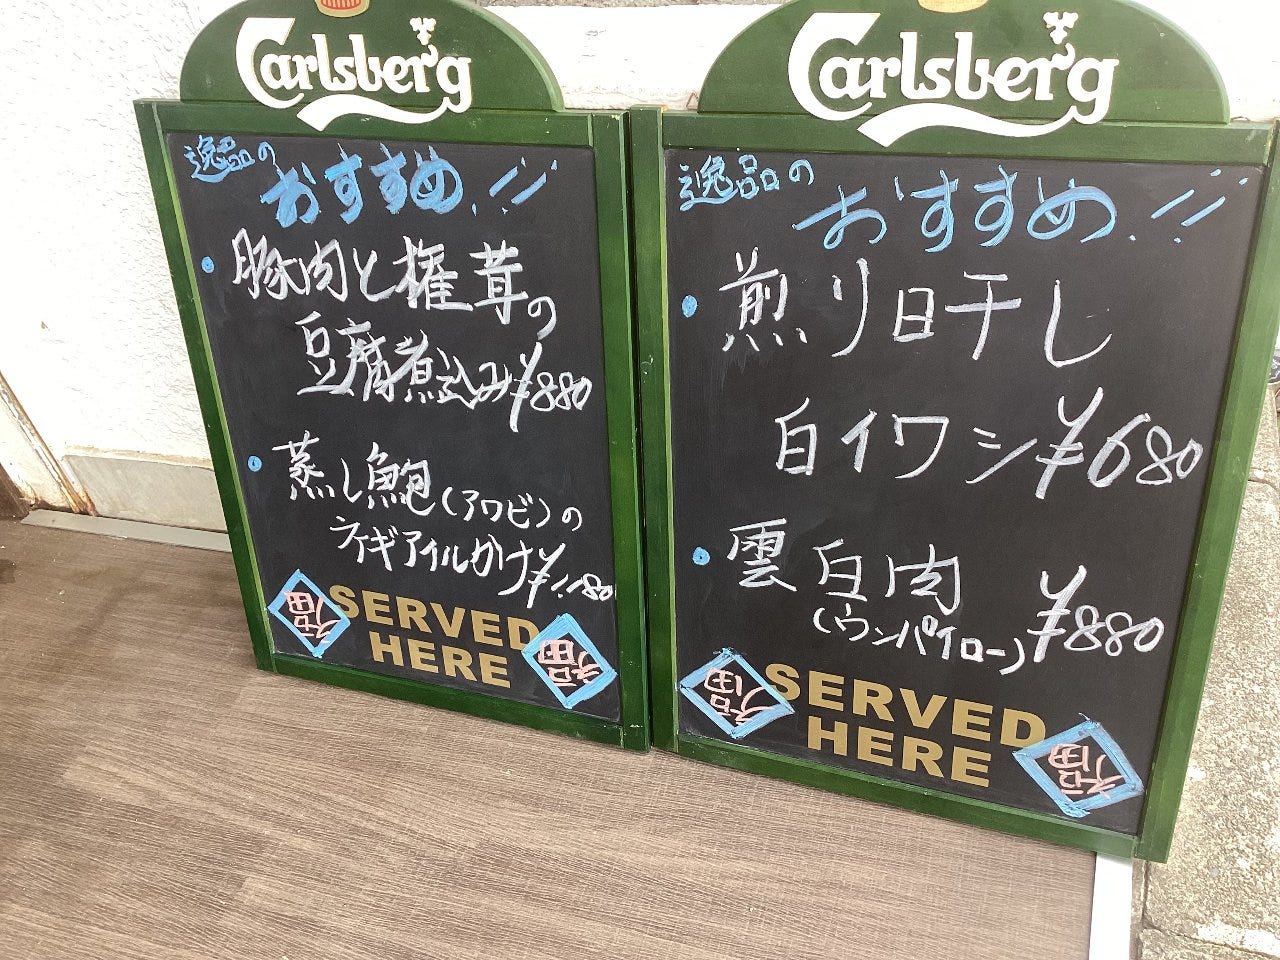 Carlsberg
逸品の
おすすめ!!
・豚肉と椎茸の
豆腐煮込み¥880
・蒸し鮑(アワビ)の
ネギアイルかけ¥1180
SERVED
HERE
福
福
Carlsberg
逸品の
おすすめ!!
・煎り日干し
白イワシ¥680
・雲白肉
(ウンパイロー)¥880
SERVED
HERE
福
福